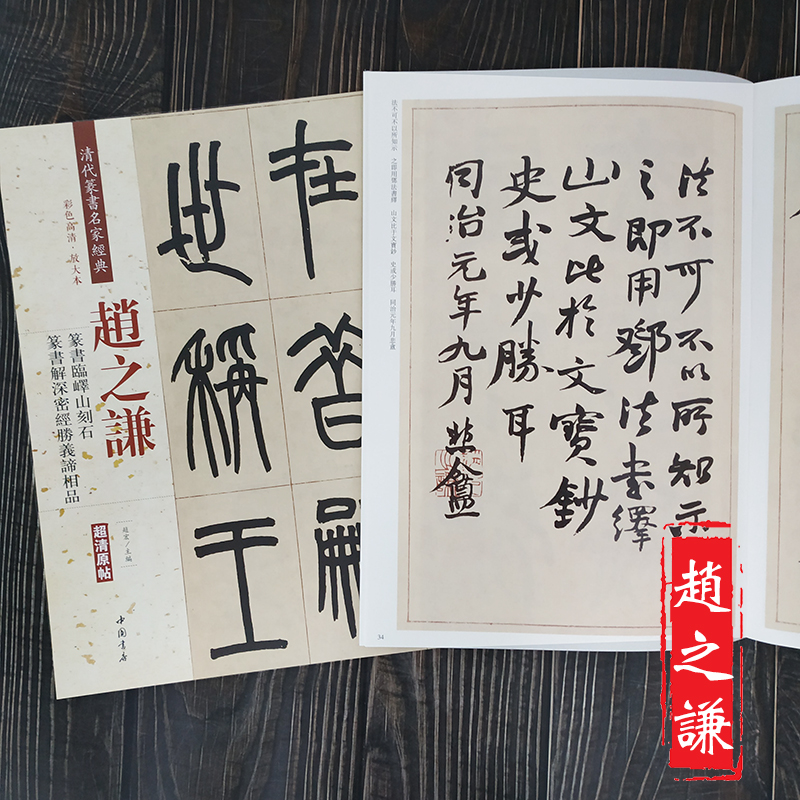 清代篆書名家經典
彩色高清·放大本
趙之謙
篆書臨嶧山刻石
篆書解深密經勝義諦相品
超清原帖
趙宏/主編
中国書店
在昔嗣
世稱王
法不可不以所知示
之即用鄧法書繹
山文比於文寶鈔
史或少勝耳
同治元年九月悲盦
法不可不以所知示 之即用鄧法書繹 山文比于文寶鈔 史或少勝耳 同治元年九月悲盦
34
趙之謙